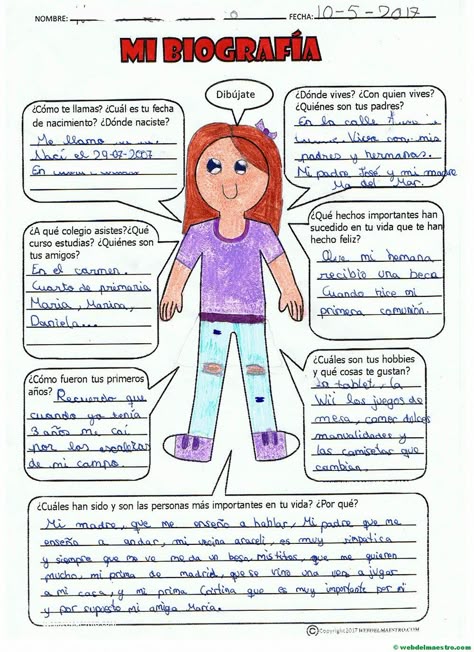 NOMBRE: FECHA: 10-5-2017
MI BIOGRAFÍA
Dibújate
¿Cómo te llamas? ¿Cuál es tu fecha
de nacimiento? ¿Dónde naciste?
Me llamo
Nací el 29-07-2007
En
¿Dónde vives? ¿Con quien vives?
¿Quiénes son tus padres?
En la calle
Vivo con mis
padres y hermanas.
Mi padre José y mi madre
Ma del Mar.
¿A qué colegio asistes?¿Qué
curso estudias? ¿Quiénes son
tus amigos?
En el carmen.
Cuarto de primaria
Maria, Marina,
Daniela...
¿Qué hechos importantes han
sucedido en tu vida que te han
hecho feliz?
Que mi hemana
recibio una beca
Cuando hice mi
primera comunión.
¿Cómo fueron tus primeros
años? Recuerdo que
cuando yo tenía
3 años me caí
por las escaleras
de mi campo.
¿Cuáles son tus hobbies
y qué cosas te gustan?
La tablet, la
Wii los juegos de
mesa, comer dulces
manualidades y
las camisetas que
cambian.
¿Cuáles han sido y son las personas más importantes en tu vida? ¿Por qué?
Mi madre, que me enseño a hablar, Mi padre que me
enseño a andar, mi vecina araceli, es muy simpatica
y siempre que me ve me da un beso. Mis titos, que me quieren
mucho, mi prima de madrid, que se vino una vez a jugar
a mi casa, y mi prima Cristina que es muy importante por mi
y por supuesto mi amiga María.
©Copyright2017 WEBDELMAESTRO.COM
© webdelmaestro.com